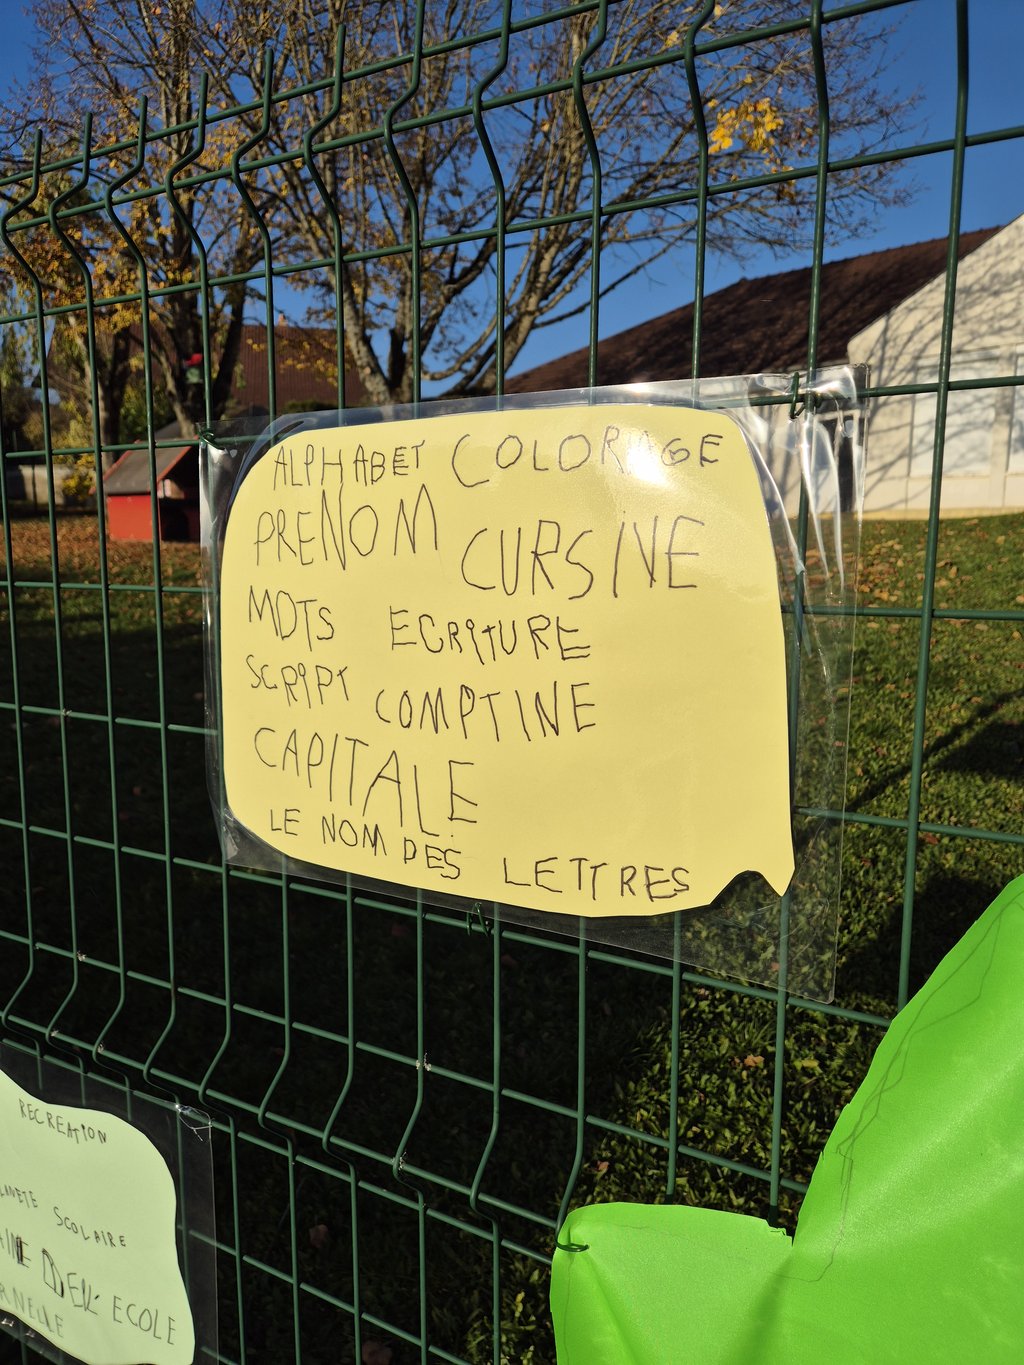 ALPHABET COLORIAGE
PRENOM CURSIVE
MOTS ECRITURE
SCRIPT COMPTINE
CAPITALE
LE NOM DES LETTRES
RECREATION
SCOLAIRE
ECOLE